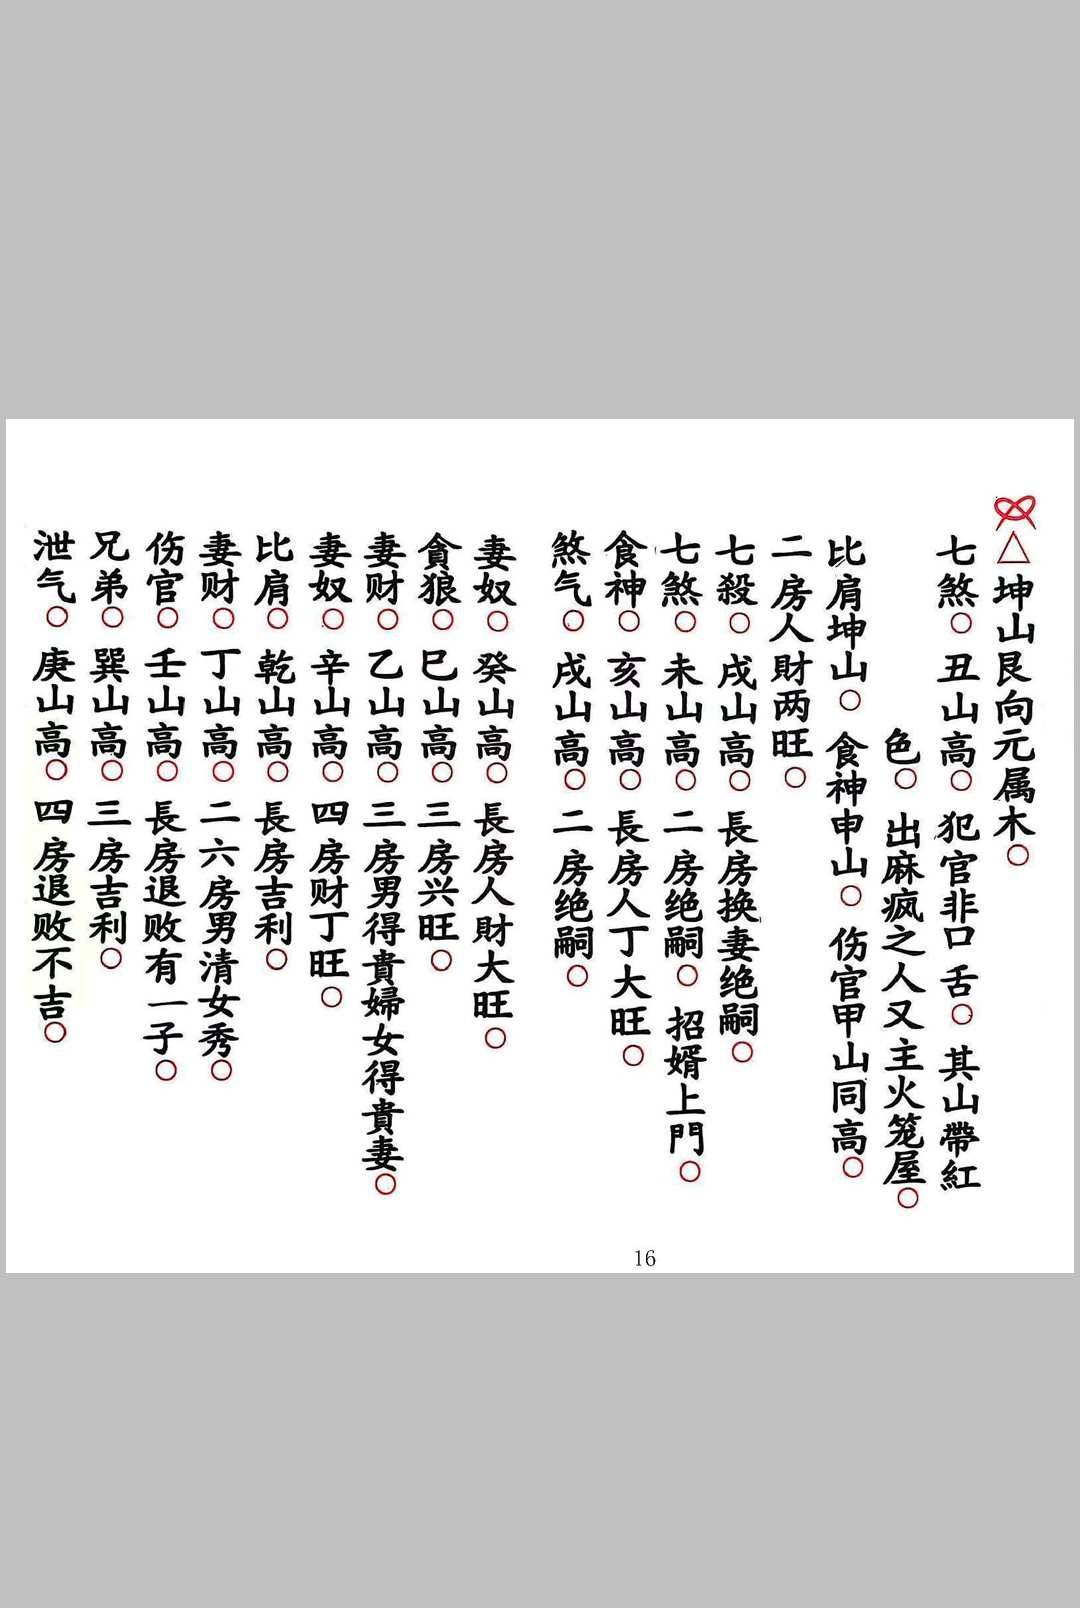 △坤山艮向元属木○
七煞○丑山高○犯官非口舌○其山帶紅
色○出麻疯之人又主火笼屋○
比肩坤山○食神申山○伤官甲山同高○
二房人財两旺○
七殺○戌山高○長房换妻绝嗣○
七煞○未山高○二房绝嗣○招婿上門○
食神○亥山高○長房人丁大旺○
煞气○戌山高○二房绝嗣○
妻奴○癸山高○長房人財大旺○
貪狼○巳山高○三房兴旺○
妻财○乙山高○三房男得貴婦女得貴妻○
妻奴○辛山高○四房财丁旺○
比肩○乾山高○長房吉利○
妻财○丁山高○二六房男清女秀○
伤官○壬山高○長房退败有一子○
兄弟○巽山高○三房吉利○
泄气○庚山高○四房退败不吉○
16